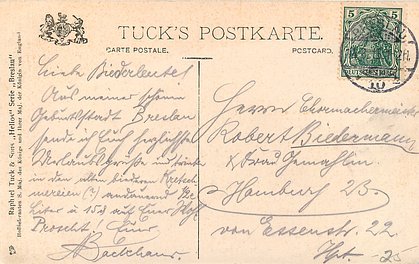 TUCK'S POSTKARTE.
CARTE POSTALE.
POSTCARD.
Raphael Tuck & Sons „Helios“ Serie „Breslau“
Hoflieferanten S. Maj. des Königs und Ihrer Maj. der Königin von England
5 5
DEUTSCHES REICH
10
Liebe Biederleute!
Aus meiner schönen
Geburtsstadt Breslau
sende ich Euch herzlichste
Grüße
in den alten biederen
(?) andauernd
Liter à 15 auf Euer
Prosit! Euer
Backhaus.
Herrn
Robert Biedermann
& Frau Gemahlin
Hamburg 23
von Essenstr. 22
Hpt.